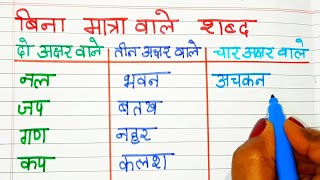 बिना मात्रा वाले शब्द
दो अक्षर वाले तीन अक्षर वाले चार अक्षर वाले
नल भवन अचकन
जप बतख
गण नहर
कप कलश